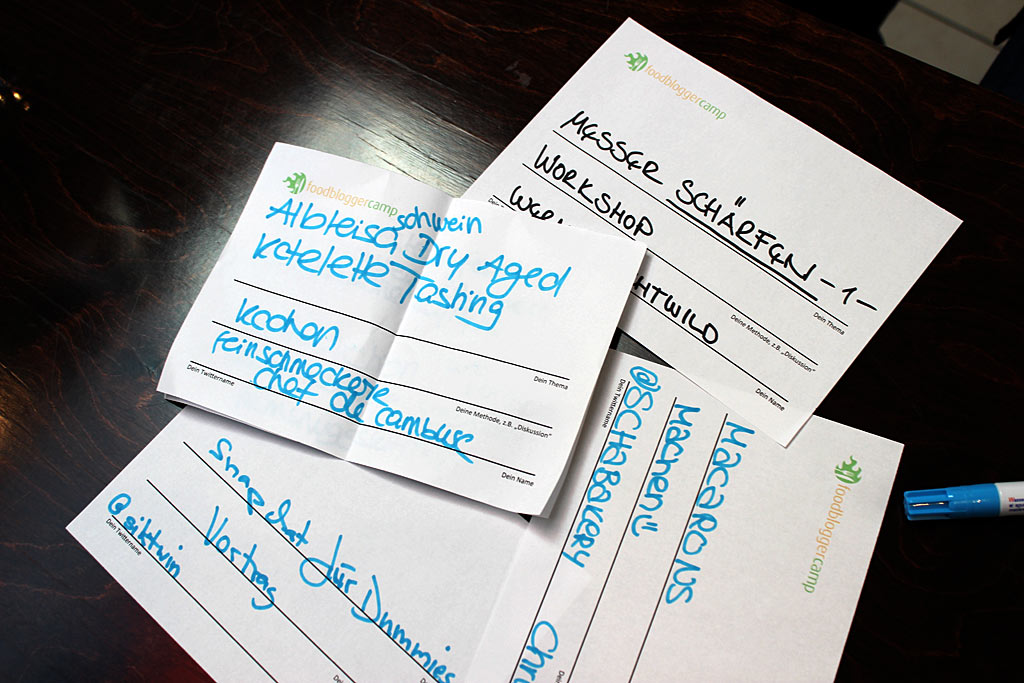 foodbloggercamp
MESSER SCHÄRFEN -1-
Dein Thema
WORKSHOP
Deine Methode, z.B. „Diskussion"
HTWILD
Dein Name
foodbloggercamp
schwein
Dry Aged
Kotelette Tasting
Dein Thema
Kochon
Deine Methode, z.B. „Diskussion"
feinschmeckerle
Chef de cambuse
Dein Twittername
Dein Name
foodbloggercamp
Macarons
Machen
@SCHABAKERY
Chr
Dein Twittername
Snapchat für Dummies
Vortrag
@siktwin
Dein Twittername